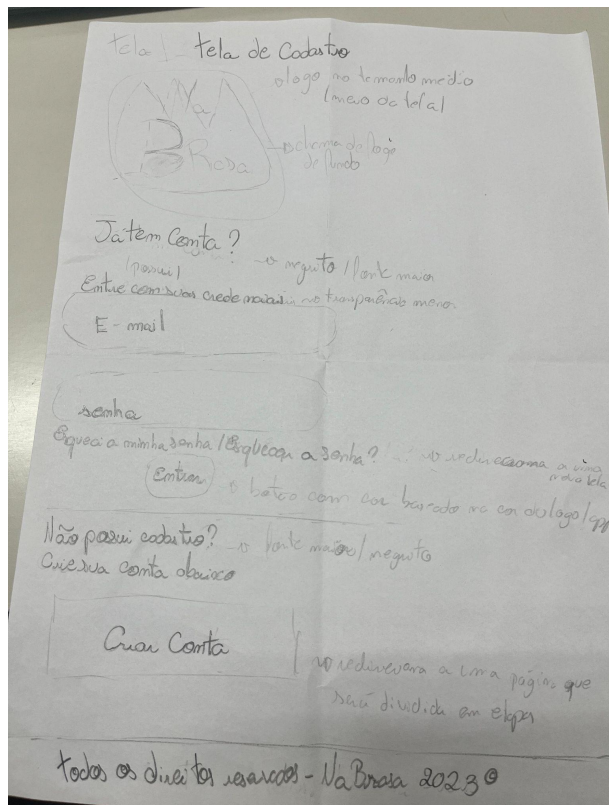 tela 1 - tela de Cadastro
logo no tamanho medio
(meio da tela)
Na
Brasa
chama de fogo
de fundo
Já tem Conta?
(possui)
negrito / fonte maior
Entre com suas credenciais transparência menor
E-mail
senha
Esqueci a minha senha / Esqueceu a senha? redireciona a uma
nova tela
Entrar botão com cor baseado na cor do logo/app
Não possui cadastro? fonte maior / negrito
Crie sua conta abaixo
Criar Conta
redirecionara a uma página que
será dividida em etapas
todos os direitos reservados - Na Brasa 2023 ©